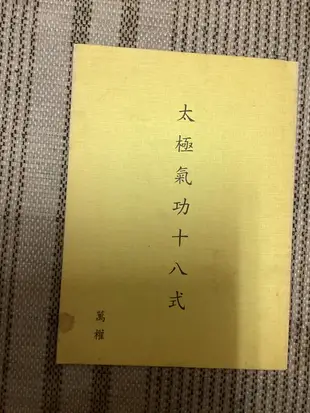 太極氣功十八式
萬權